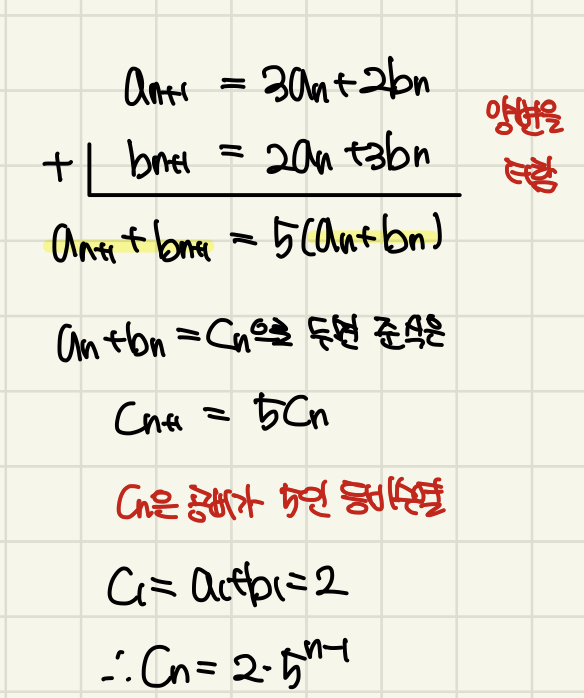 aₙ₊₁ = 3aₙ + 2bₙ
양변을
+ bₙ₊₁ = 2aₙ + 3bₙ
aₙ₊₁ + bₙ₊₁ = 5(aₙ + bₙ)
aₙ + bₙ = Cₙ으로 두면 준식은
Cₙ₊₁ = 5Cₙ
Cₙ은 공비가 5인 등비수열
C₁ = a₁ + b₁ = 2
∴ Cₙ = 2 · 5ⁿ⁻¹